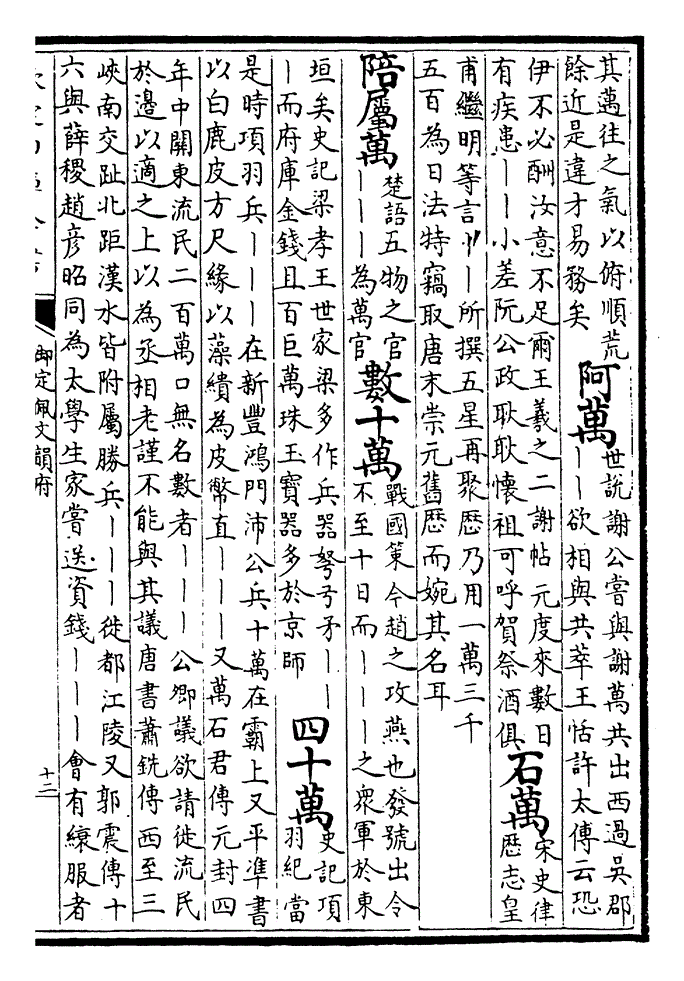 其萬往之氣以俯順荒
餘近是違才易務矣
阿萬
世説謝公嘗與謝萬共出西過吳郡
｜｜欲相與共萃王恬許太傅云恐
伊不必酬汝意不足爾王羲之二謝帖元度來數日
有疾患｜｜小差阮公政耿耿懷祖可呼賀祭酒俱
石萬
宋史律
歷志皇
甫繼明等言｜｜所撰五星再聚歷乃用一萬三千
五百為日法特竊取唐末崇元舊歷而婉其名耳
陪屬萬
楚語五物之官
｜｜｜為萬官
數十萬
戰國策今趙之攻燕也發號出令
不至十日而｜｜｜之衆軍於東
垣矣史記梁孝王世家梁多作兵器弩弓矛｜｜
｜而府庫金錢且百巨萬珠玉寶器多於京師
四十萬
史記項
羽紀當
是時項羽兵｜｜｜在新豐鴻門沛公兵十萬在霸上又平準書
以白鹿皮方尺緣以藻繢為皮幣直｜｜｜又萬石君傳元封四
年中關東流民二百萬口無名數者｜｜｜公卿議欲請徙流民
於邊以適之上以為丞相老謹不能與其議唐書蕭銑傳西至三
峽南交趾北距漢水皆附屬勝兵｜｜｜徙都江陵又郭震傳十
六與薛稷趙彦昭同為太學生家嘗送資錢｜｜｜會有縗服者
御定佩文韻府
十二